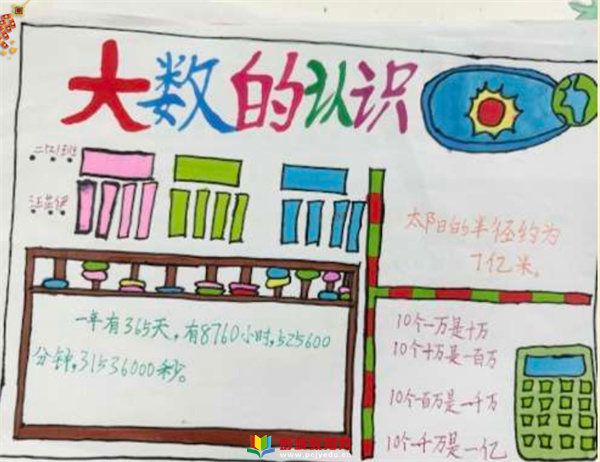 大数的认识
太阳的半径约为
7亿米。
一年有365天,有8760小时,525600
分钟,31536000秒。
10个一万是十万
10个十万是一百万
10个一百万是一千万
10个一千万是一亿
www.pcjyedu.cn